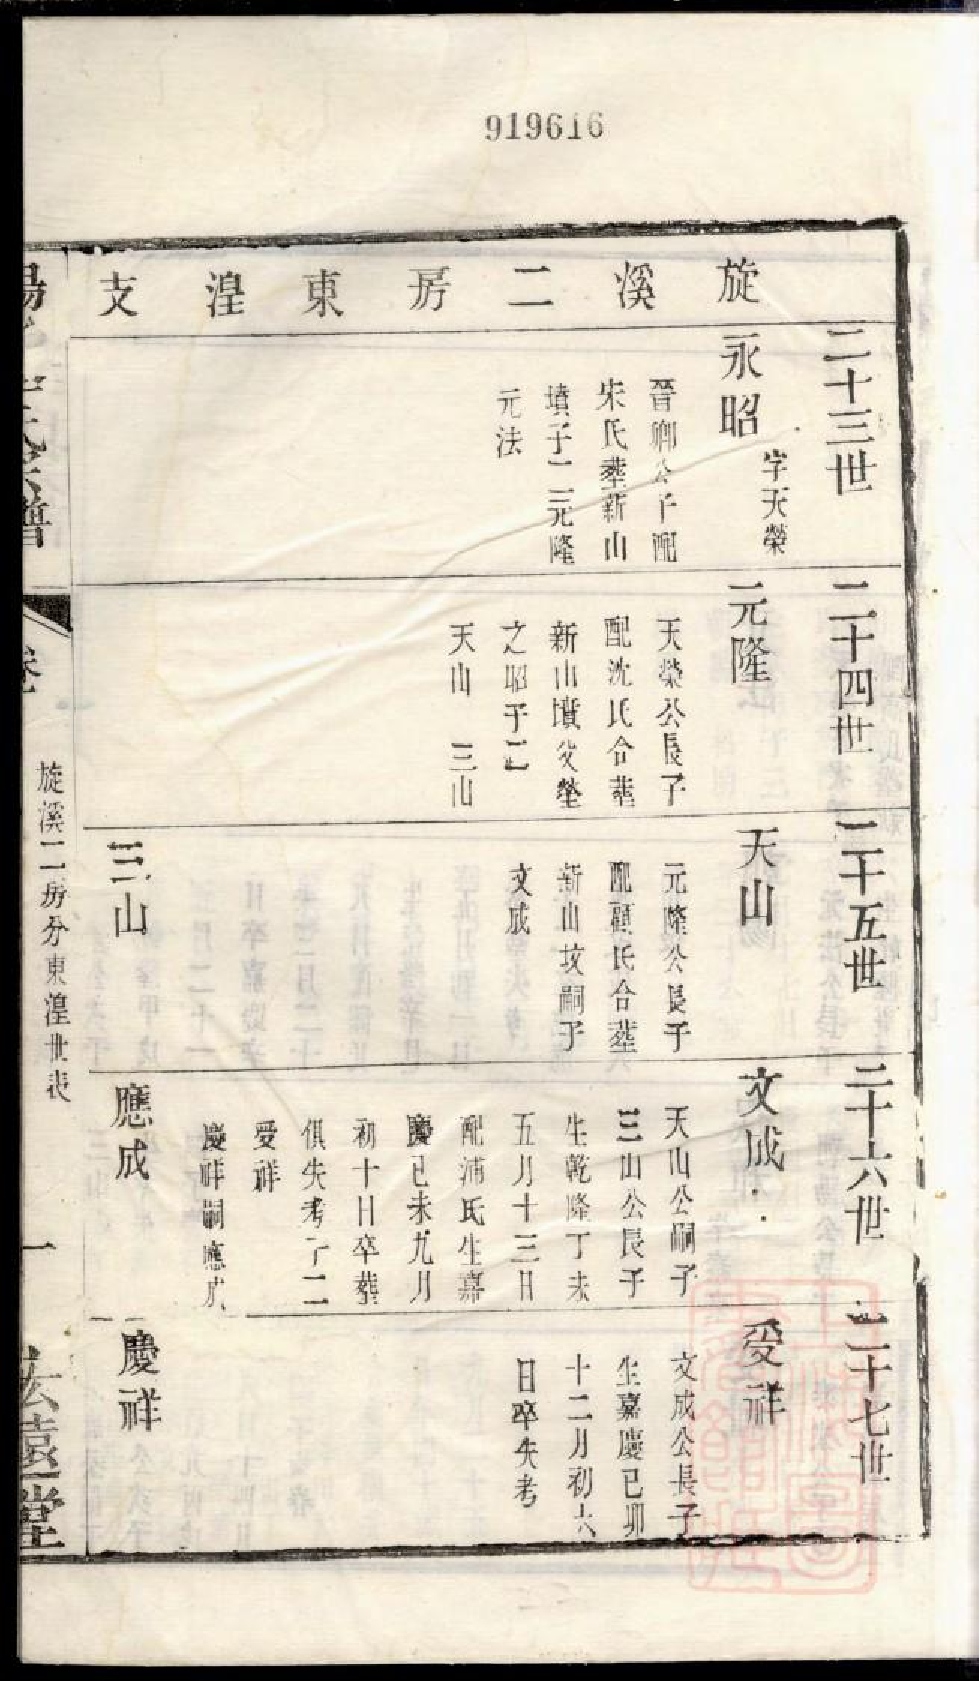 919616
旋溪二房東湟支
二十三世
永昭
字天榮
晉卿公子配
宋氏葬新山
墳子二元隆
元法
二十四世
元隆
天榮公長子
配沈氏合葬
新山墳父塋
之昭子二
天山 三山
二十五世
天山
元隆公長子
配顧氏合葬
新山坟嗣子
文成
三山
二十六世
文成
天山公嗣子
三山公長子
生乾隆丁未
五月十三日
配浦氏生嘉
慶已未九月
初十日卒葬
俱失考子二
受祥
慶祥嗣應成
應成
二十七世
受祥
文成公長子
生嘉慶已卯
十二月初六
日卒失考
慶祥
氏宗譜
卷
旋溪二房分東湟世表
一
遠堂